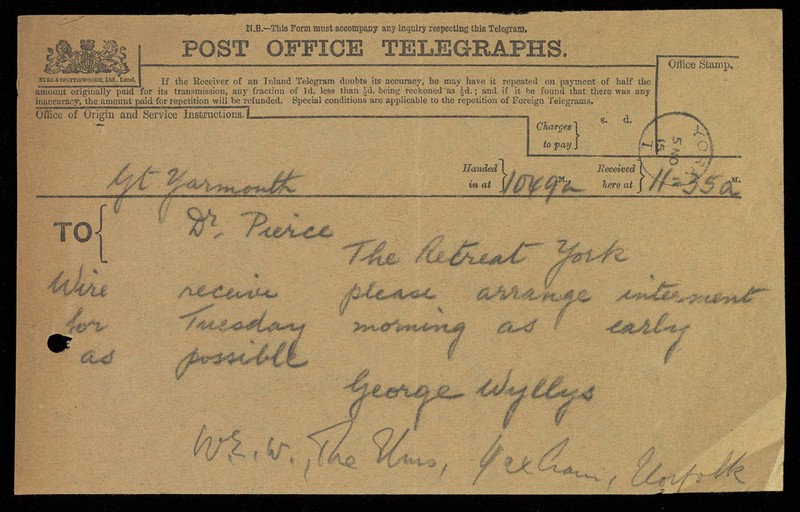 N.B.—This Form must accompany any inquiry respecting this Telegram.
POST OFFICE TELEGRAPHS.
If the Receiver of an Inland Telegram doubts its accuracy, he may have it repeated on payment of half the
amount originally paid for its transmission, any fraction of 1d. less than ½d. being reckoned as ½d.; and if it be found that there was any
inaccuracy, the amount paid for repetition will be refunded. Special conditions are applicable to the repetition of Foreign Telegrams.
Office Stamp.
Office of Origin and Service Instructions.
Charges to pay
s. d.
YORK
5 NO
15
Gt Yarmouth
Handed in at
1049a M.
Received here at
11=35a M.
TO
Dr. Pierce
The Retreat York
Wire receive please arrange interment
for Tuesday morning as early
as possible
George Wyllys
W.E.W., The , Norfolk